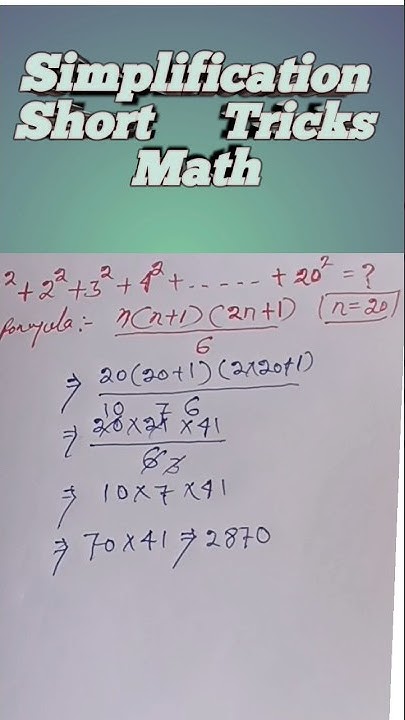 Simplification
Short Tricks
Math
² + 2² + 3² + 4² + ----- + 20² = ?
formula:- n(n+1)(2n+1) (n=20)
6
⇒ 20(20+1)(2×20+1)
6
10 7
⇒ 20×21×41
6 2
⇒ 10×7×41
⇒ 70×41 ⇒ 2870